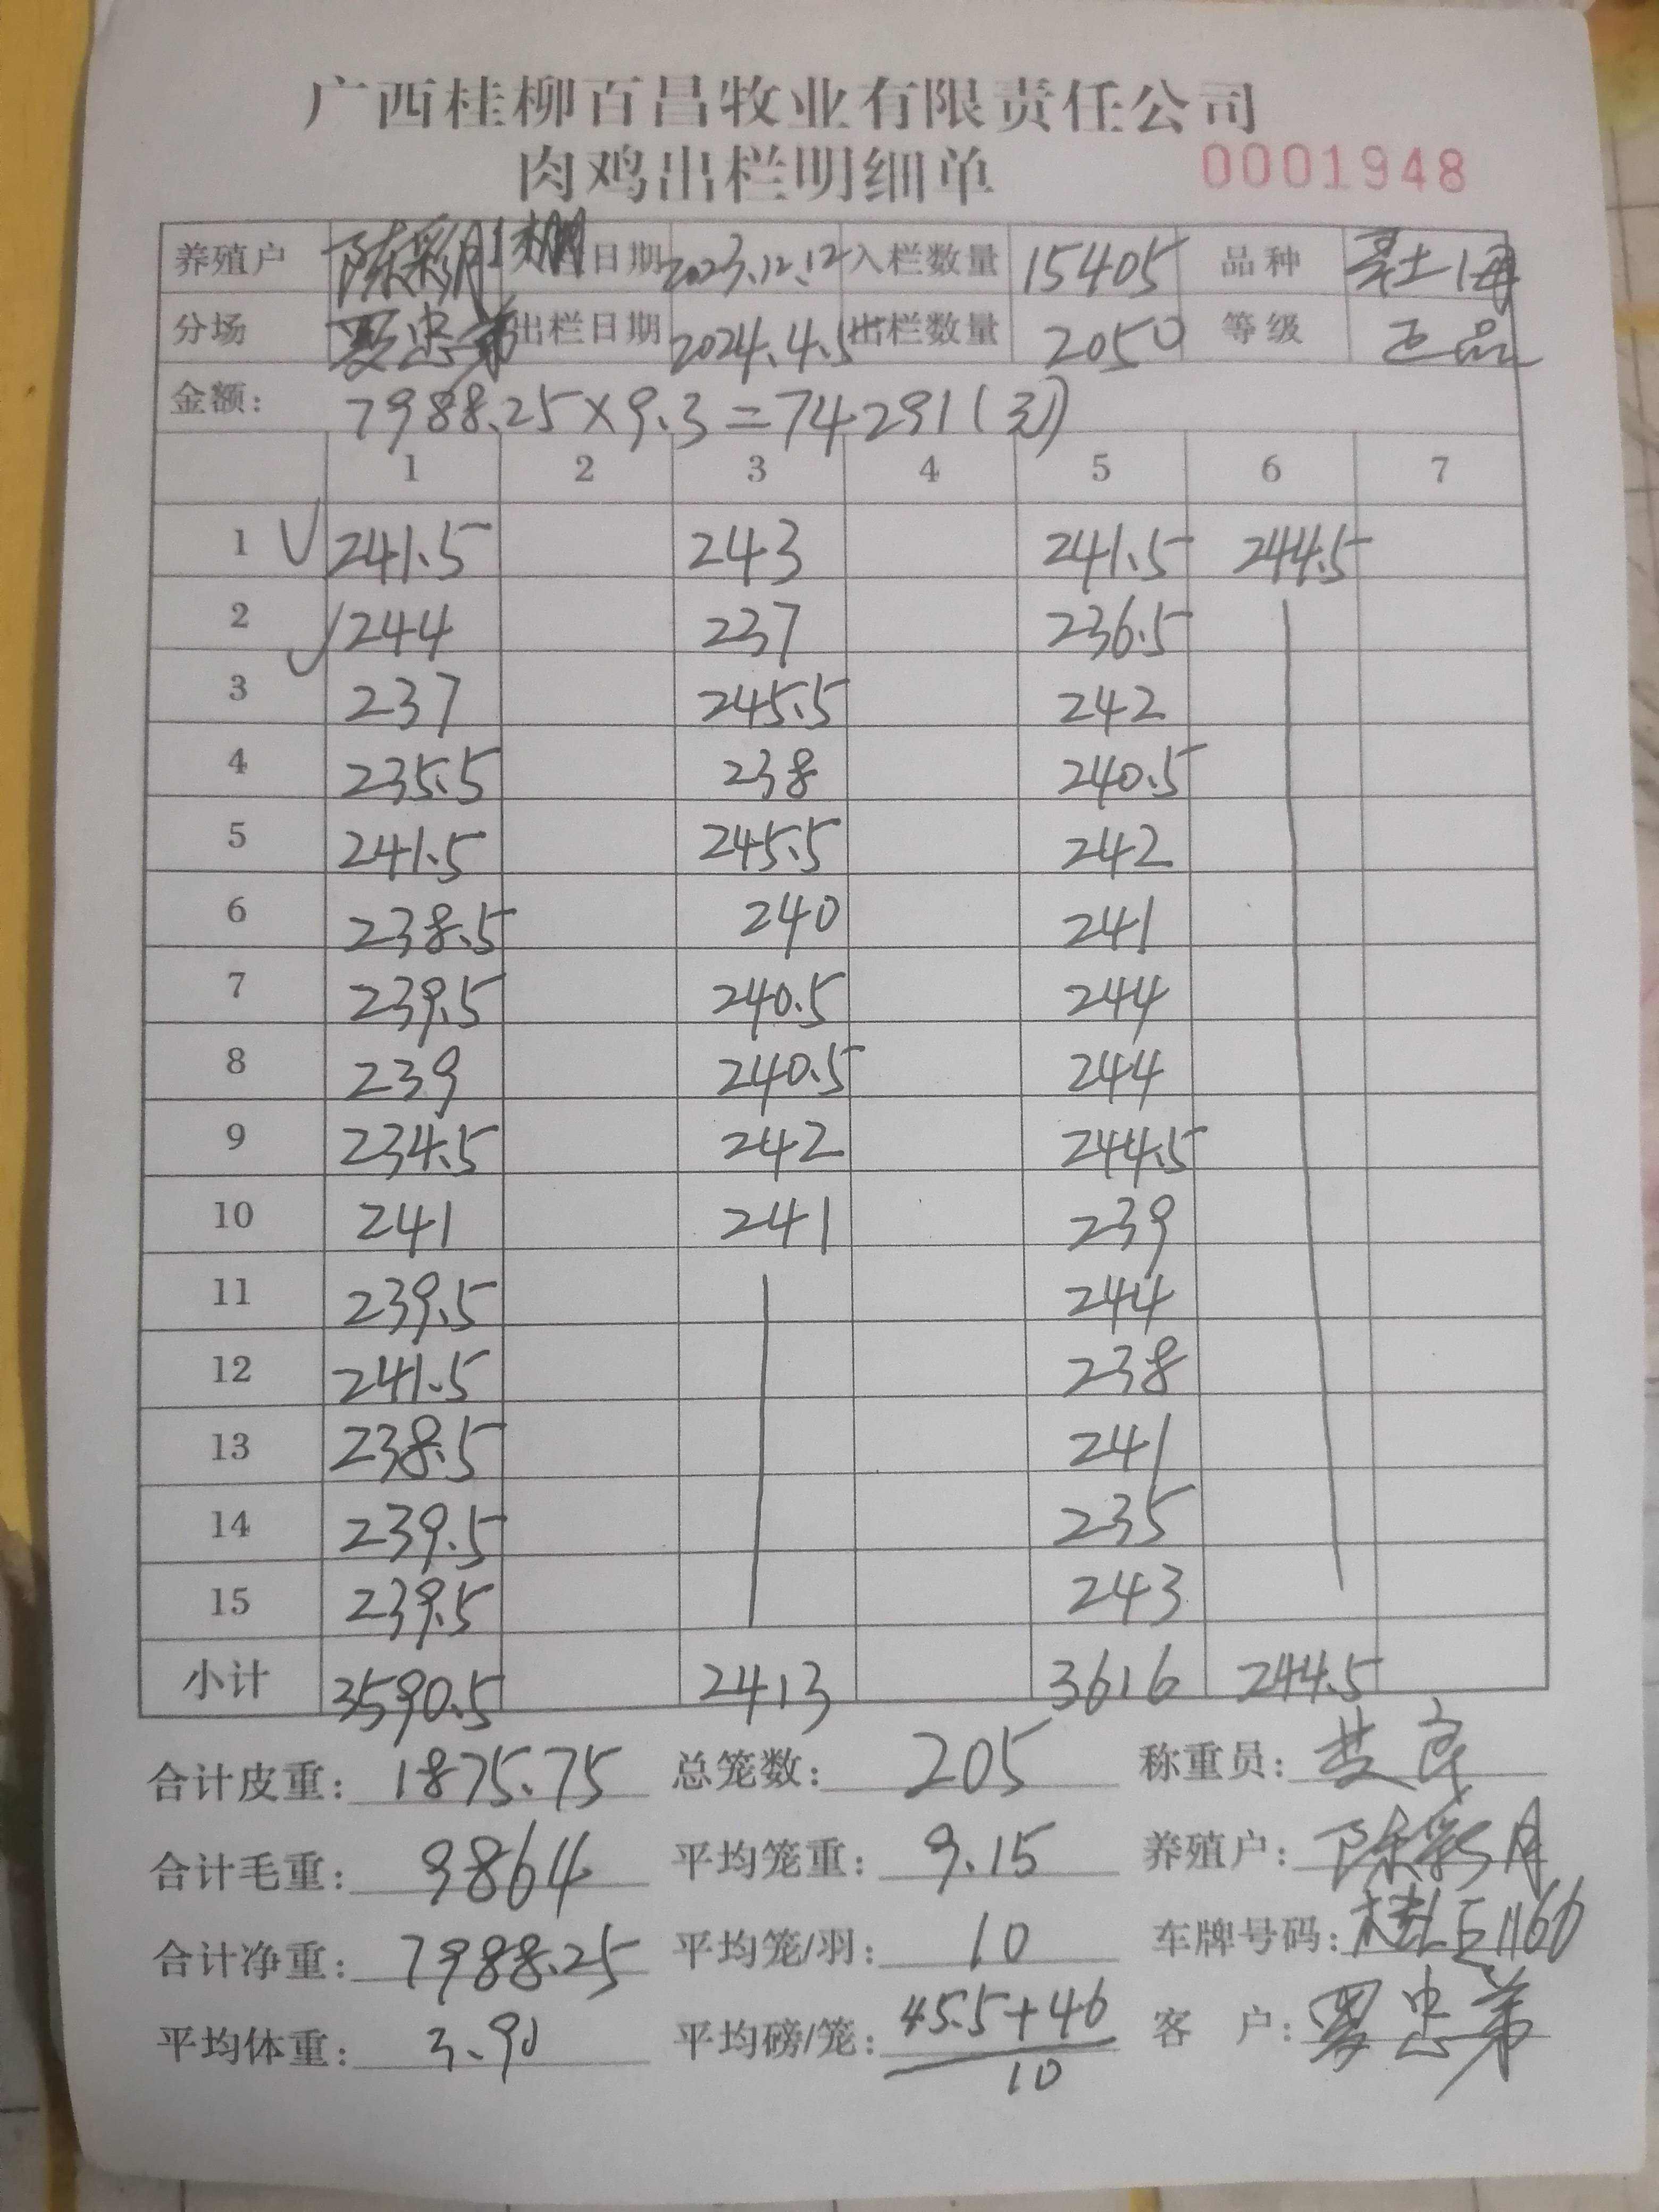 广西桂柳百昌牧业有限责任公司
肉鸡出栏明细单 0001948
养殖户 陈彩月1棚 日期 2023.12.12 入栏数量 15405 品种 土
分场 罗忠弟 出栏日期 2024.4.5 出栏数量 2050 等级 正品
金额: 7988.25×9.3=74291(元)
1 2 3 4 5 6 7
1 241.5 243 241.5 244.5
2 244 237 236.5
3 237 245.5 242
4 235.5 238 240.5
5 241.5 245.5 242
6 238.5 240 241
7 239.5 240.5 244
8 239 240.5 244
9 234.5 242 244.5
10 241 241 239
11 239.5 244
12 241.5 238
13 238.5 241
14 239.5 235
15 239.5 243
小计 3590.5 2413 3616 244.5
合计皮重: 1875.75 总笼数: 205 称重员:
合计毛重: 9864 平均笼重: 9.15 养殖户: 陈彩月
合计净重: 7988.25 平均笼/羽: 10 车牌号码:
平均体重: 3.90 平均磅/笼: 45.5+46 客 户: 罗忠弟
10